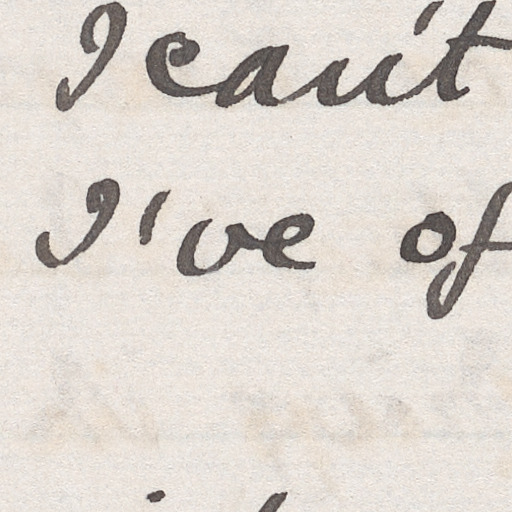 I can't
I've of